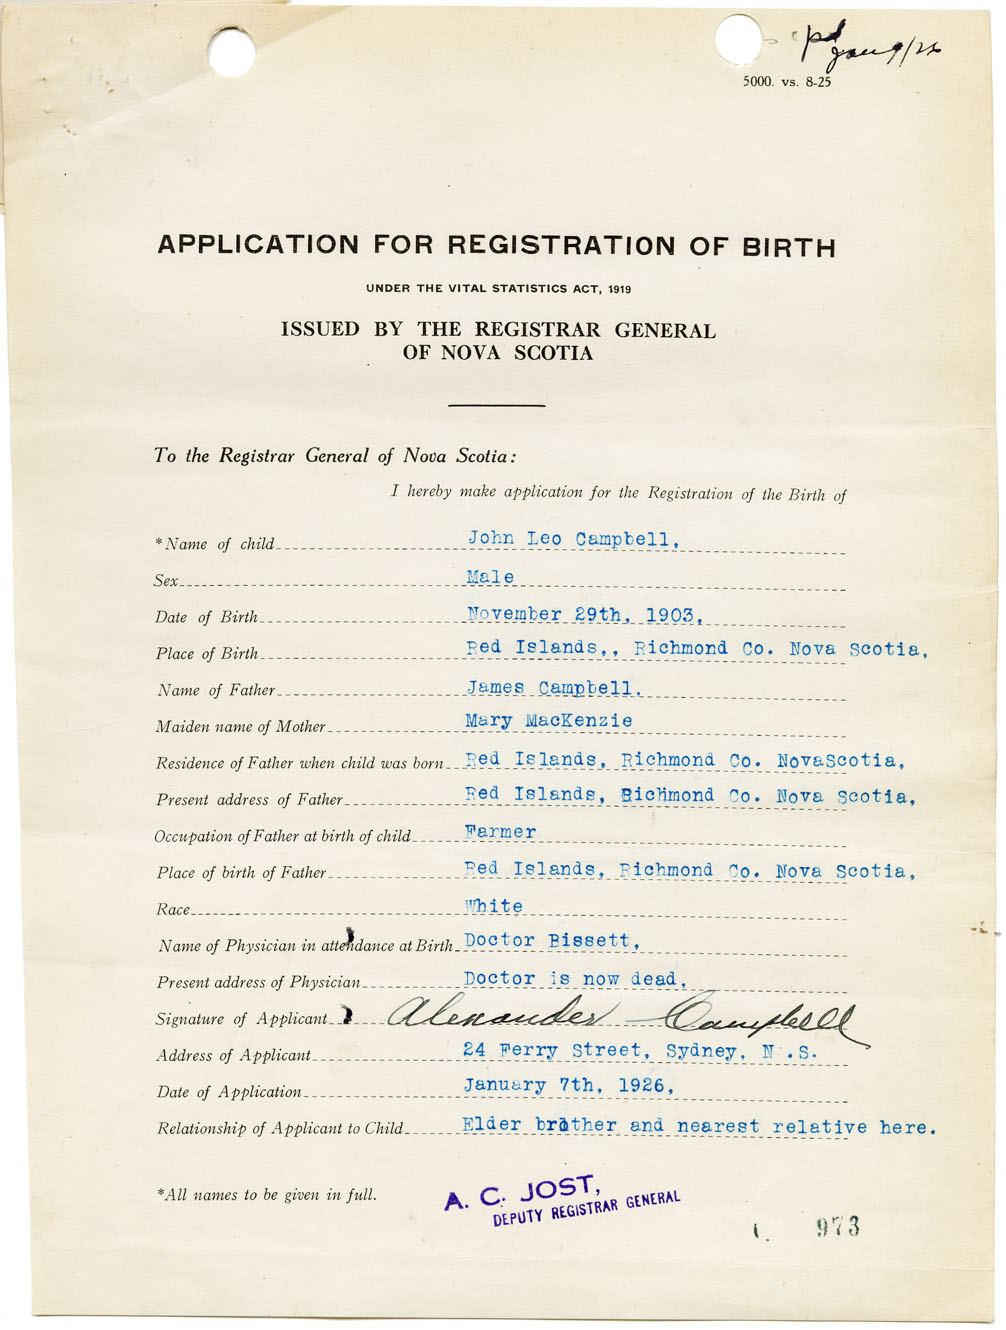 pd
Jan 9/26
5000. vs. 8-25
APPLICATION FOR REGISTRATION OF BIRTH
UNDER THE VITAL STATISTICS ACT, 1919
ISSUED BY THE REGISTRAR GENERAL
OF NOVA SCOTIA
To the Registrar General of Nova Scotia:
I hereby make application for the Registration of the Birth of
*Name of child John Leo Campbell,
Sex Male
Date of Birth November 29th, 1903,
Place of Birth Red Islands,, Richmond Co. Nova Scotia,
Name of Father James Campbell.
Maiden name of Mother Mary MacKenzie
Residence of Father when child was born Red Islands, Richmond Co. NovaScotia,
Present address of Father Red Islands, Richmond Co. Nova Scotia,
Occupation of Father at birth of child Farmer
Place of birth of Father Red Islands, Richmond Co. Nova Scotia,
Race White
Name of Physician in attendance at Birth Doctor Bissett,
Present address of Physician Doctor is now dead,
Signature of Applicant Alexander Campbell
Address of Applicant 24 Ferry Street, Sydney, N .S.
Date of Application January 7th, 1926,
Relationship of Applicant to Child Elder brother and nearest relative here.
*All names to be given in full.
A. C. JOST,
DEPUTY REGISTRAR GENERAL
973